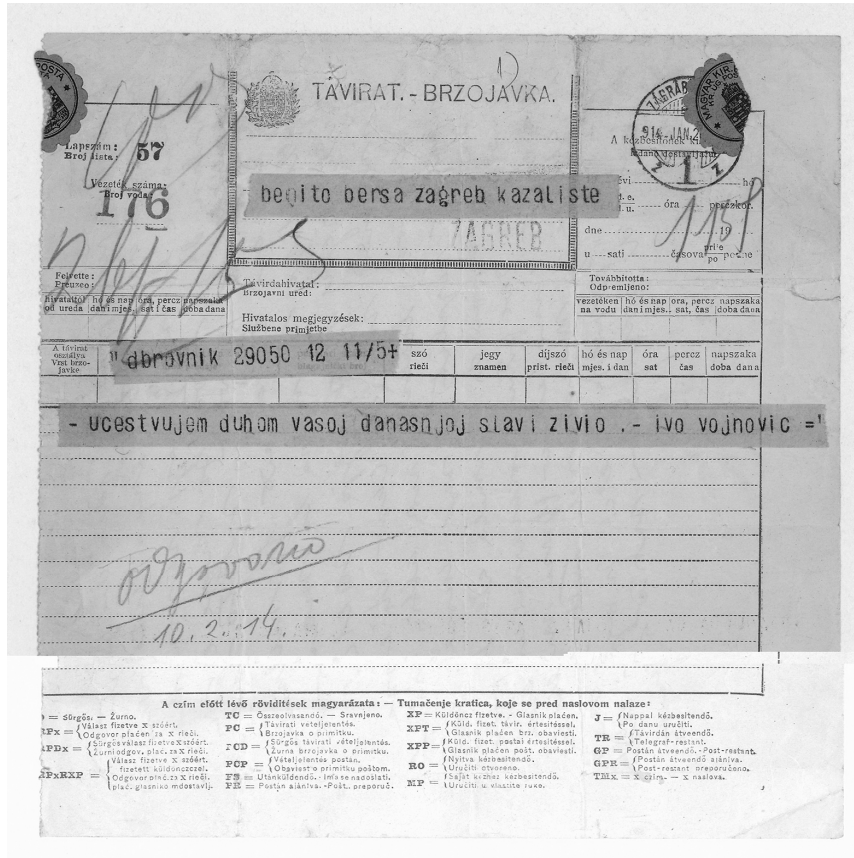 TÁVIRAT. - BRZOJAVKA.
Lapszám:
Broj lista: 57
Vezeték száma:
Broj voda:
176
ZAGREB
914 JAN. 2
1
A kézbesítőnek
MAGYAR KIR.
begito bersa zagreb kazaliste
ZAGREB
ó
óra perczkor.
dne 19
u sati časova prije po podne
1159
Felvette:
Preuzeo:
Távirdahivatal:
Brzojavni ured:
Hivatalos megjegyzések:
Službene primjetbe
Továbbította:
Odpremljeno:
hivataltól hó és nap óra, percz napszaka
od ureda dan i mjes. sat i čas doba dana
vezetéken hó és nap óra, percz napszaka
na vodu dan i mjes. sat, čas doba dana
A távirat osztálya
Vrst brzojavke
"dbrovnik 29050 12 11/5+
szó jegy díjszó hó és nap óra percz napszaka
rieči znamen prist. rieči mjes. i dan sat čas doba dana
- ucestvujem duhom vasoj danasnjoj slavi zivio .- ivo vojnovic ="
odgovario
10. 2. 14.
A czím előtt lévő rövidítések magyarázata: — Tumačenje kratica, koje se pred naslovom nalaze:
= Sürgős. - Žurno.
RPx = Válasz fizetve x szóért.
Odgovor plaćen za x rieči.
RPDx = Sürgős válasz fizetve x szóért.
Žurni odgov. plać. za x rieči.
RPxRXP = Válasz fizetve x szóért, fizetett küldönczczel.
Odgovor plać. za x rieči, plać. glasniko m dostavlj.
TC = Összeolvasandó. - Sravnjeno.
PC = Távirati vételjelentés.
Brzojavka o primitku.
PCD = Sürgős távirati vételjelentés.
Žurna brzojavka o primitku.
PCP = Vételjelentés postán.
Obaviest o primitku poštom.
FS = Utánküldendő. - Ima se nadoslati.
PR = Postán ajánlva. - Pošt. preporuč.
XP = Küldöncz fizetve. - Glasnik plaćen.
XPT = Küld. fizet. távir. értesítéssel.
Glasnik plaćen brz. obaviesti.
XPP = Küld. fizet. postai értesítéssel.
Glasnik plaćen pošt. obaviesti.
RO = Nyitva kézbesítendő.
Uručiti otvoreno.
MP = Saját kézhez kézbesítendő.
Uručiti u vlastite ruke.
J = Nappal kézbesítendő.
Po danu uručiti.
TR = Távirdán átveendő.
Telegraf-restant.
GP = Postán átveendő. - Post-restant.
GPR = Postán átveendő ajánlva.
Post-restant preporučeno.
TMx = x czím. - x naslova.